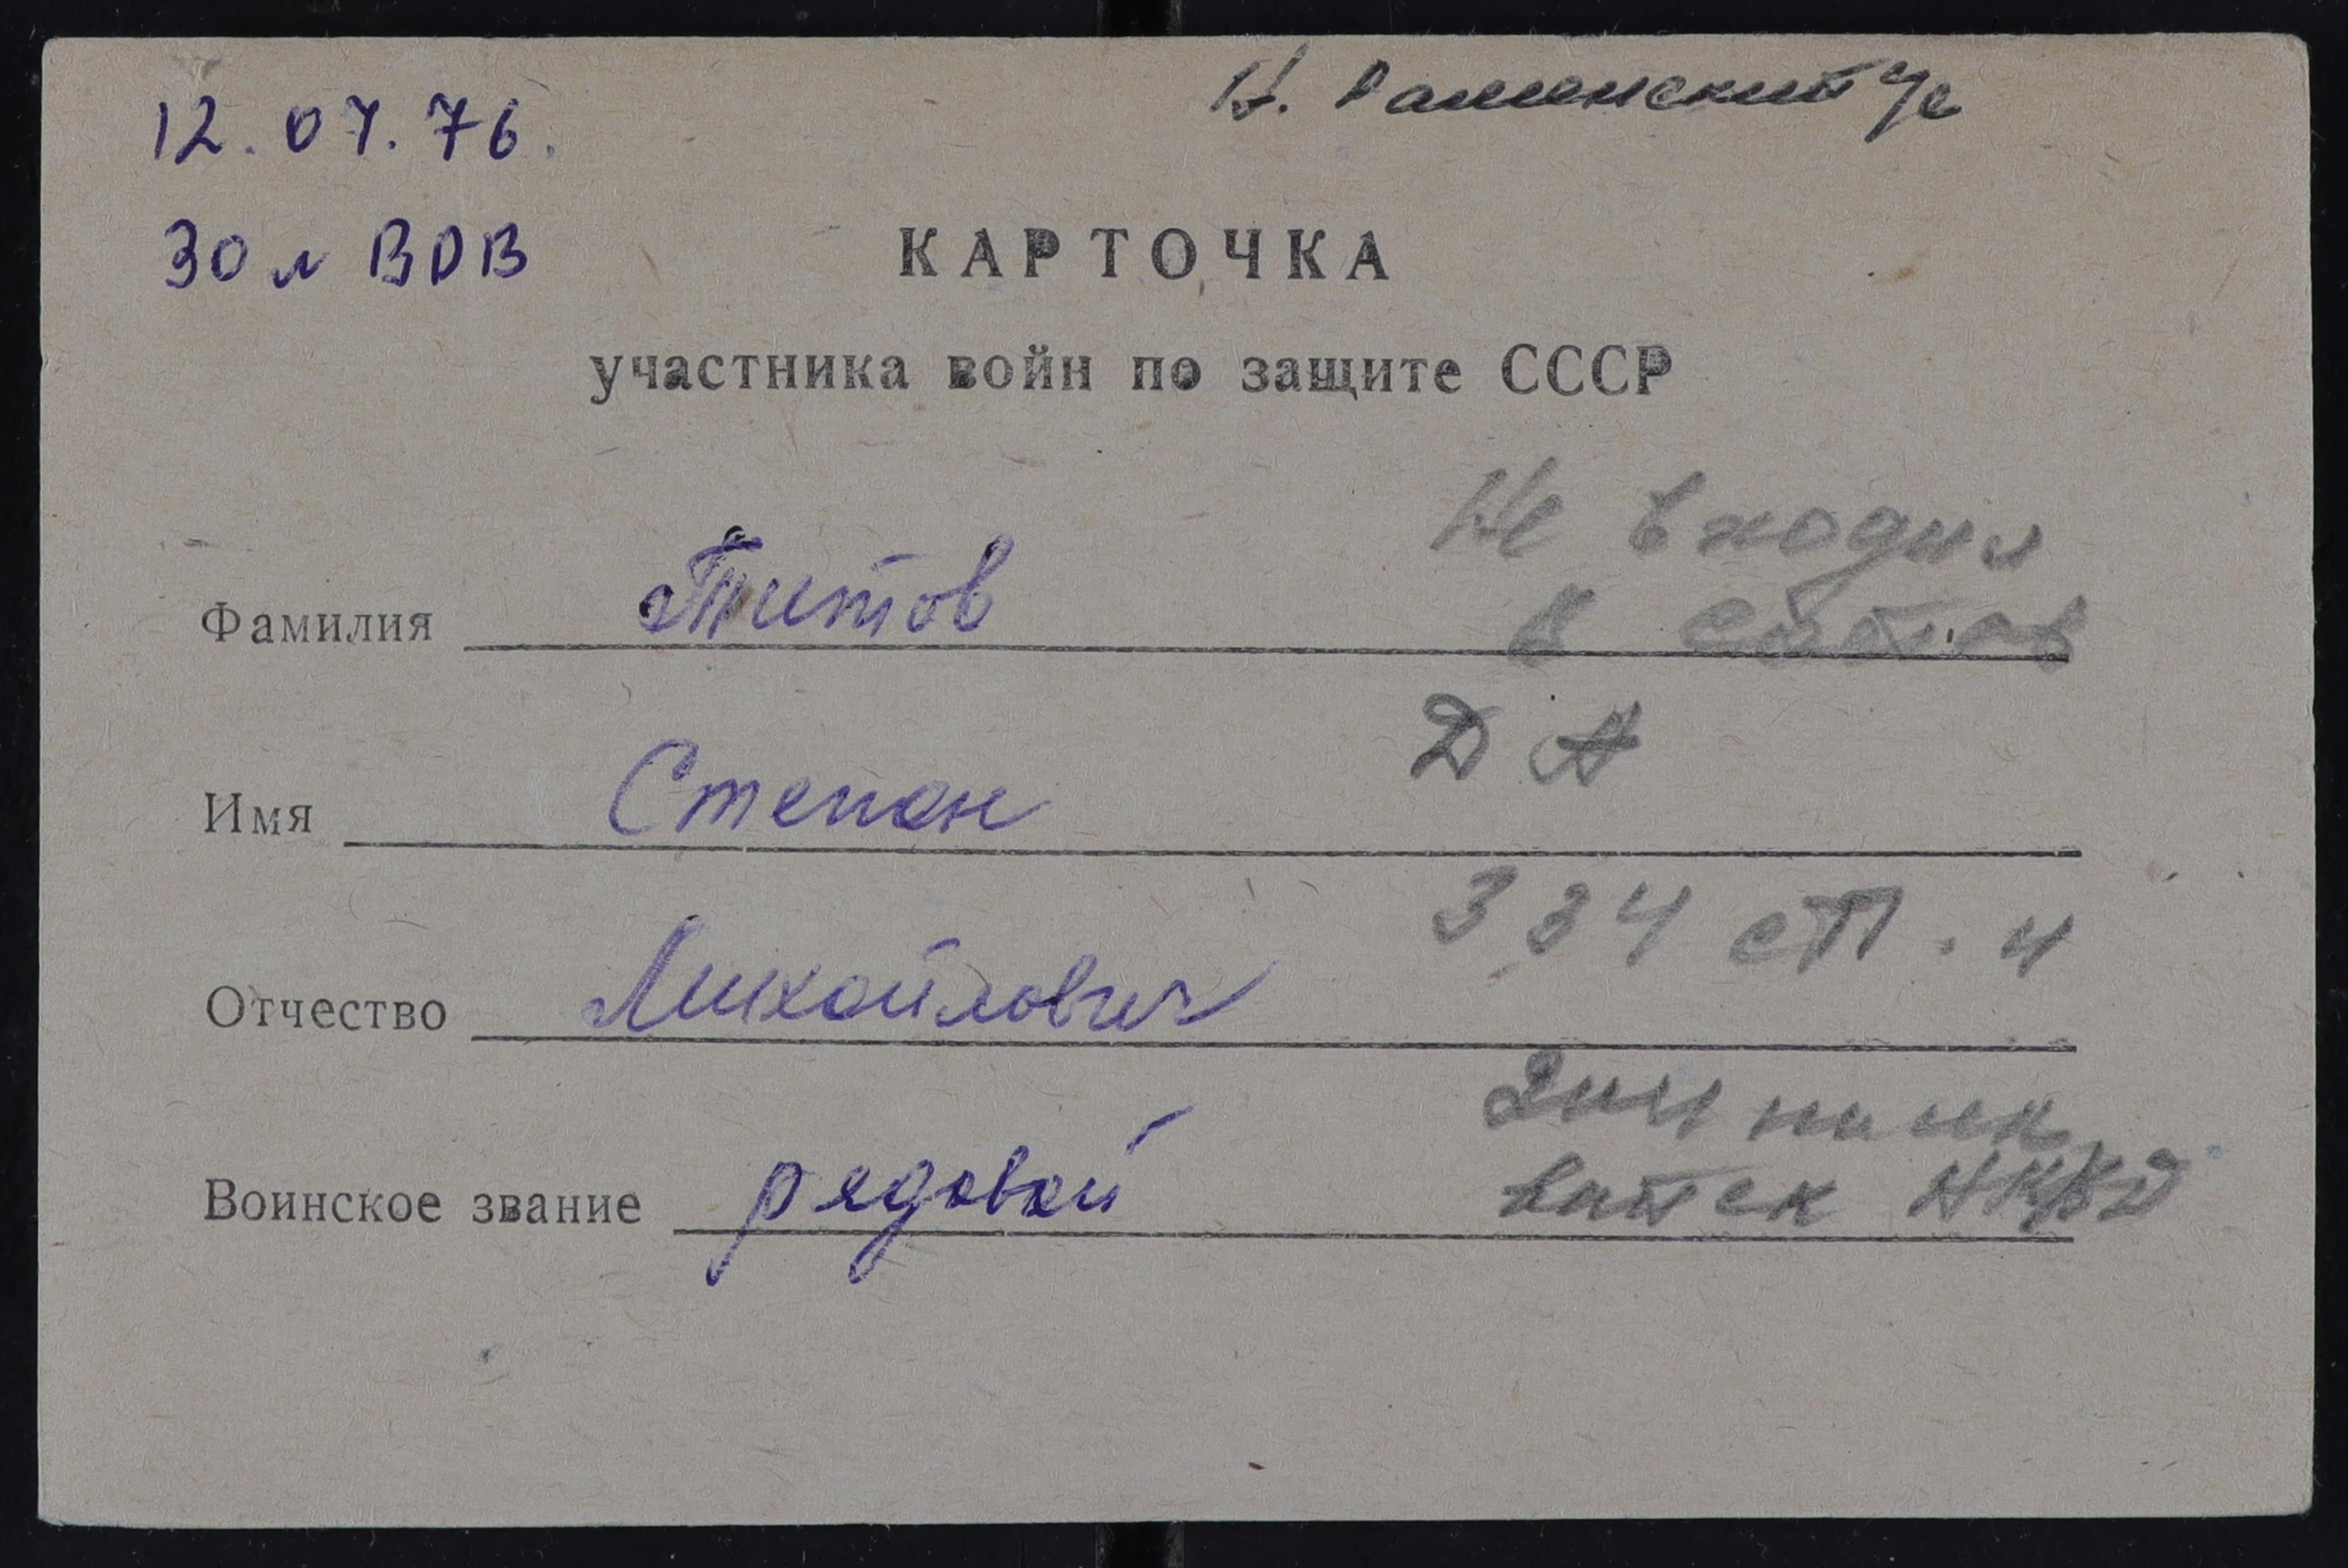 12.07.76.
30 л ВОВ
КАРТОЧКА
участника войн по защите СССР
Не входил
Фамилия Титов
в состав
ДА
Имя Степан
334 сп.
Отчество Михайлович
Воинское звание рядовой
войск НКВД